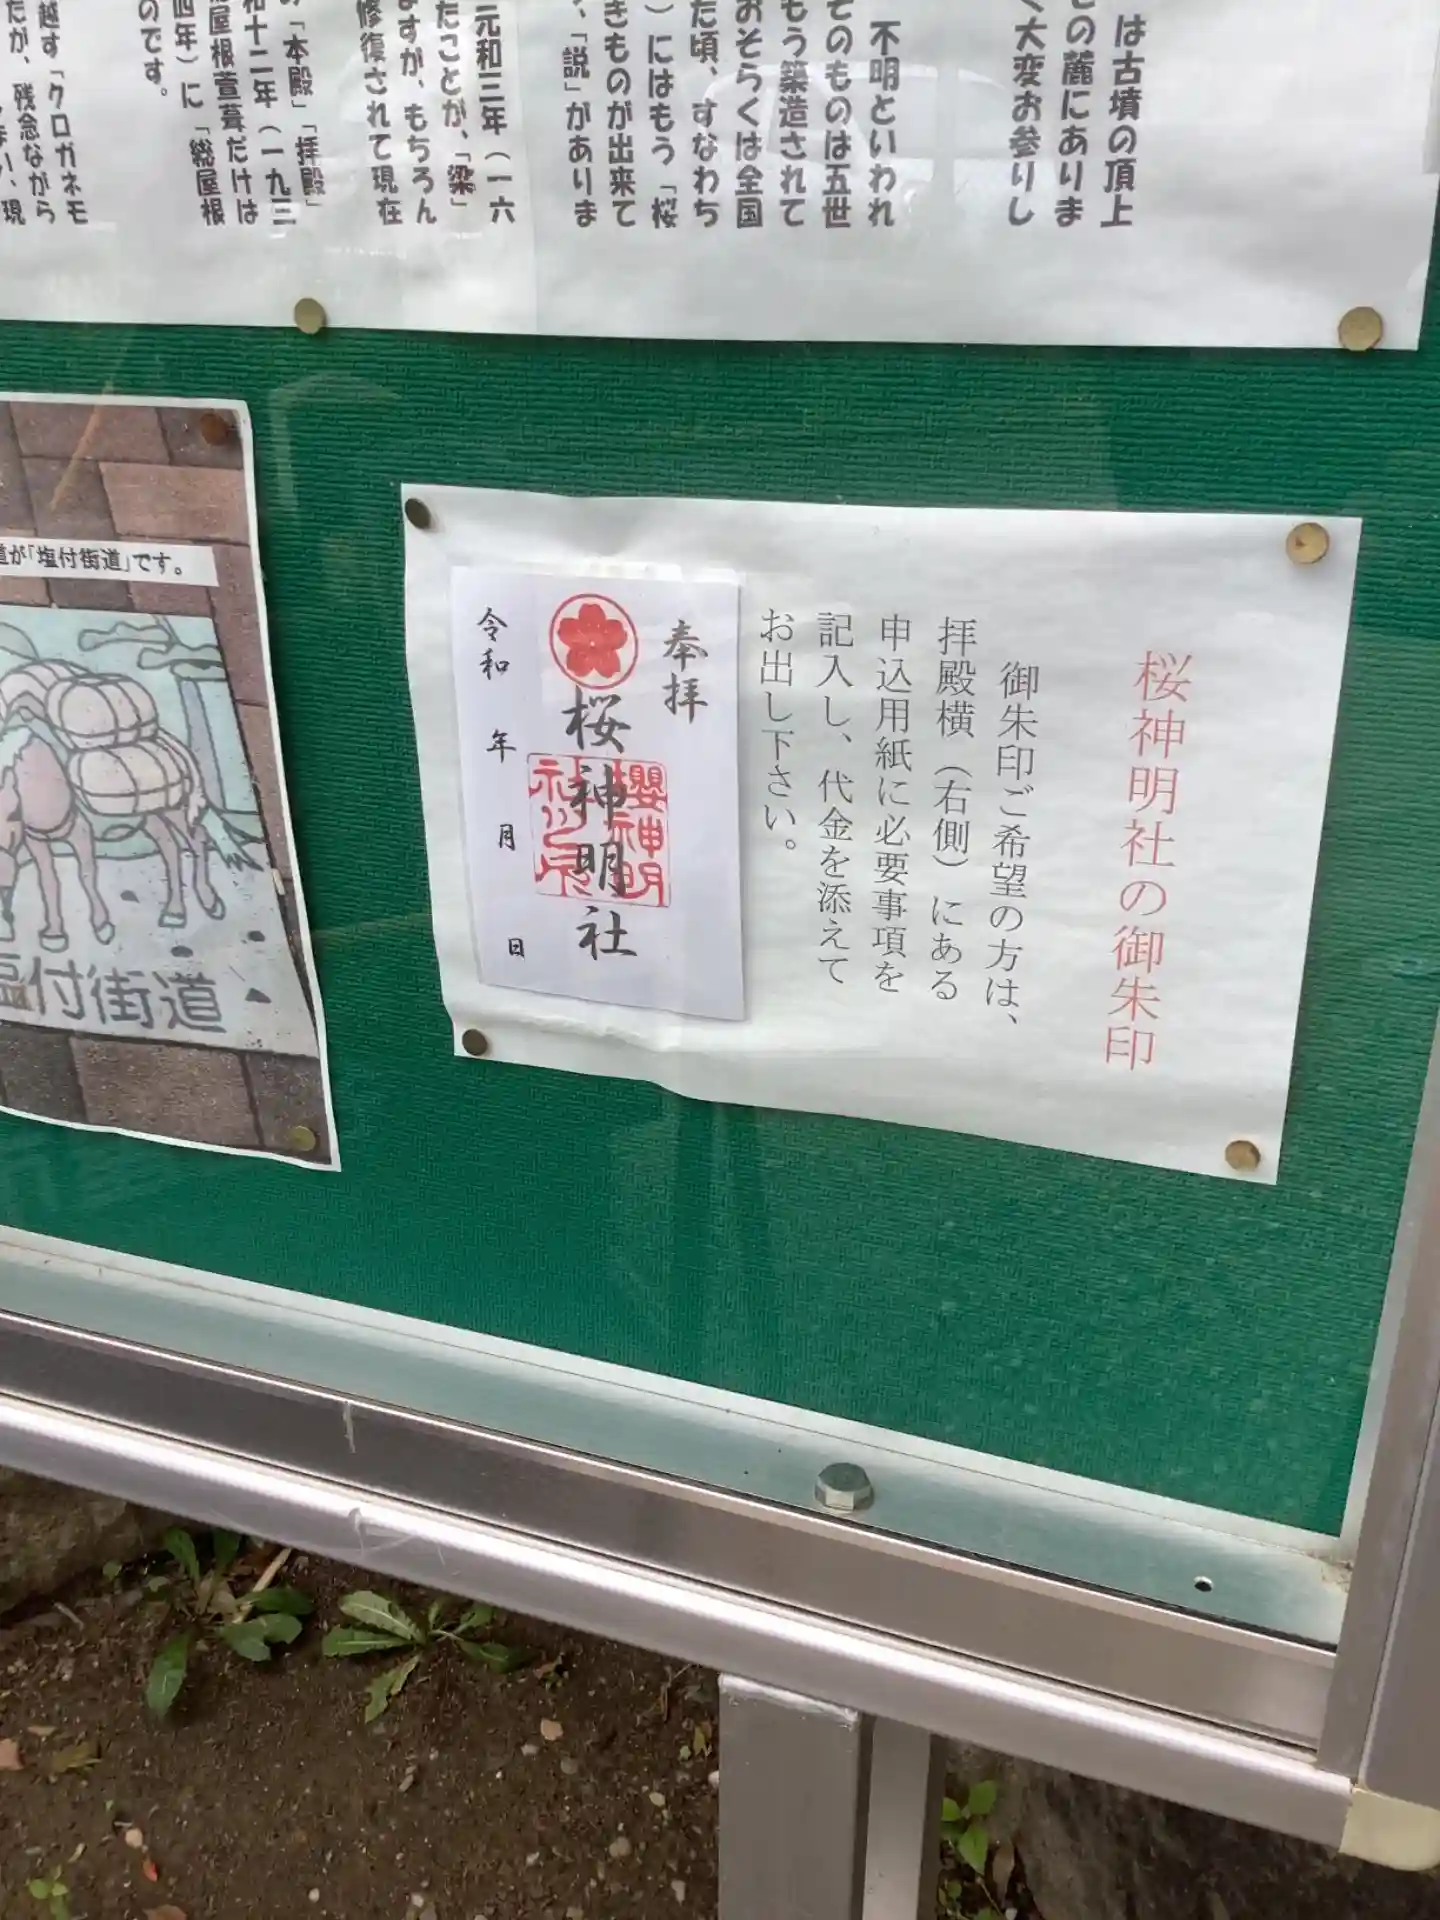 は古墳の頂上
の麓にありま
く大変お参りし
不明といわれ
そのものは五世
もう築造されて
おそらくは全国
た頃、すなわち
）にはもう「桜
きものが出来て
、「説」がありま
元和三年（一六
たことが、「梁」
ますが、もちろん
修復されて現在
「本殿」「拝殿」
和十二年（一九三
屋根萱葺だけは
四年）に「総屋根
のです。
越す「クロガネモ
たが、残念ながら
現
道が「塩付街道」です。
塩付街道
桜神明社の御朱印
御朱印ご希望の方は、
拝殿横（右側）にある
申込用紙に必要事項を
記入し、代金を添えて
お出し下さい。
奉拝
桜神明社
櫻神明
社之印
令和 年 月 日